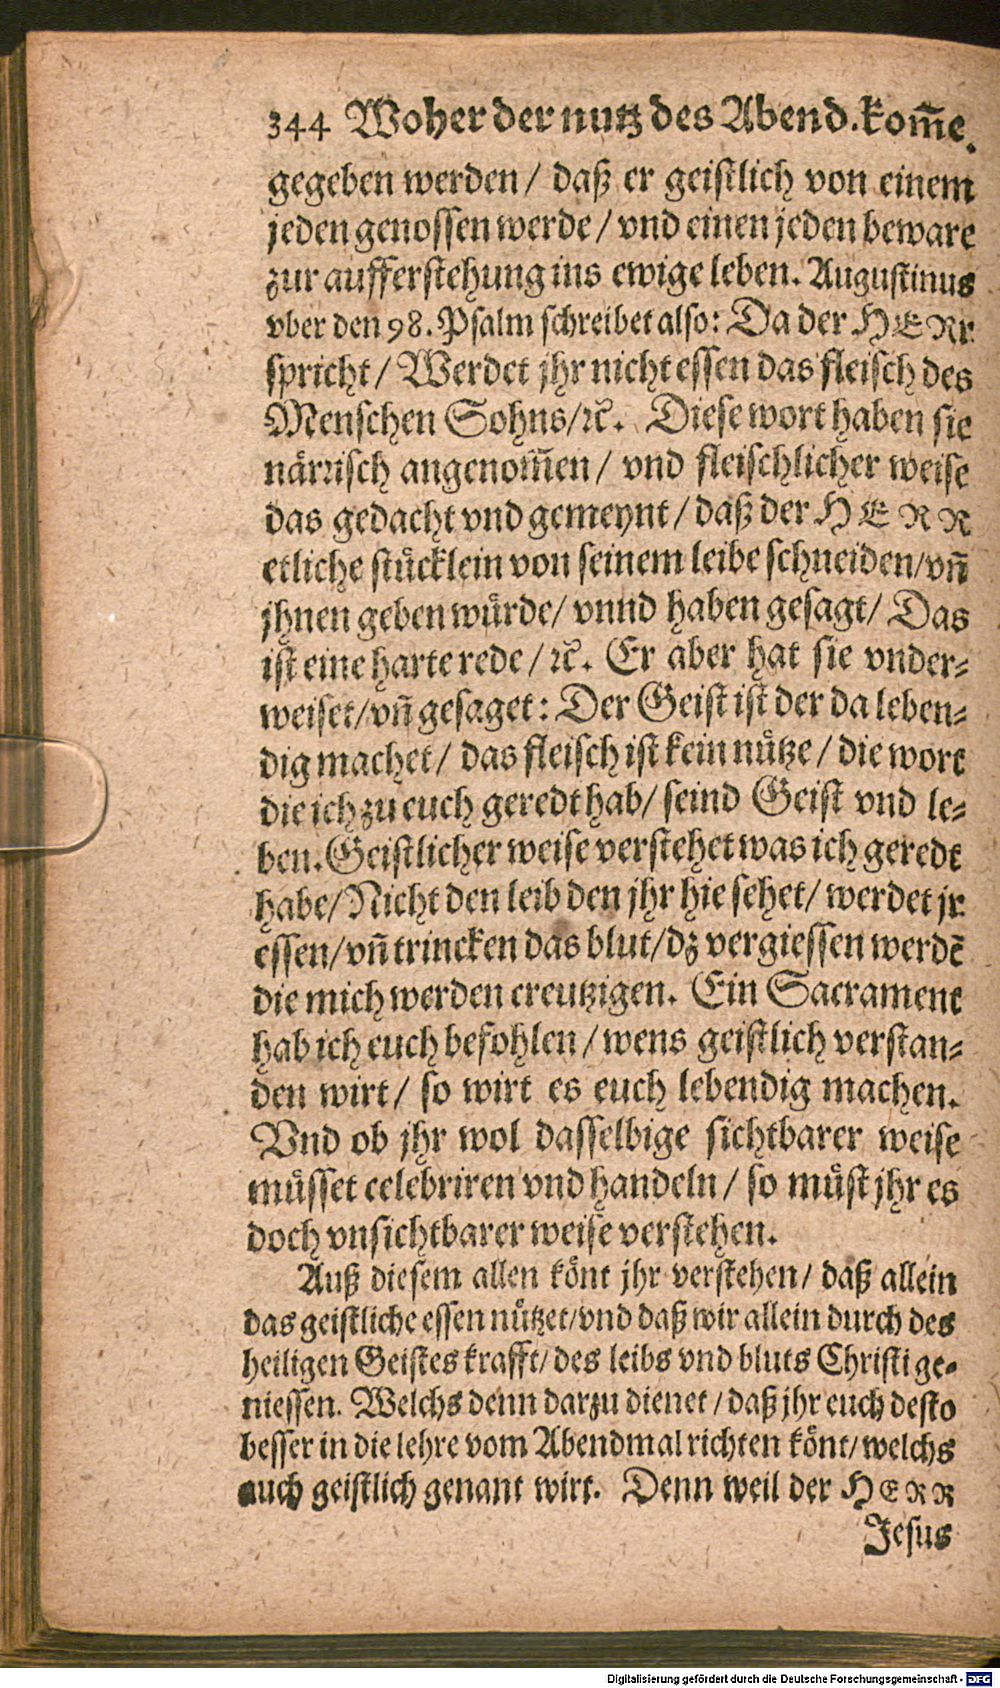 344 Woher der nutz des Abend. kom̃e.
gegeben werden / daß er geistlich von einem
jeden genossen werde / vnd einen jeden beware
zur aufferstehung ins ewige leben. Augustinus
vber den 98. Psalm schreibet also: Da der HERr
spricht / Werdet jhr nicht essen das fleisch des
Menschen Sohns / ꝛc̃. Diese wort haben sie
närrisch angenom̃en / vnd fleischlicher weise
das gedacht vnd gemeynt / daß der HERR
etliche stücklein von seinem leibe schneiden / vñ
jhnen geben würde / vnnd haben gesagt / Das
ist eine harte rede / ꝛc̃. Er aber hat sie vnder-
weiset / vñ gesaget: Der Geist ist der da leben-
dig machet / das fleisch ist kein nütze / die wort
die ich zu euch geredt hab / seind Geist vnd le-
ben. Geistlicher weise verstehet was ich geredt
habe / Nicht den leib den jhr hie sehet / werdet jr
essen / vñ trincken das blut / dz vergiessen werdẽ
die mich werden creutzigen. Ein Sacrament
hab ich euch befohlen / wens geistlich verstan-
den wirt / so wirt es euch lebendig machen.
Vnd ob jhr wol dasselbige sichtbarer weise
müsset celebriren vnd handeln / so müst jhr es
doch vnsichtbarer weise verstehen.
Auß diesem allen könt jhr verstehen / daß allein
das geistliche essen nützet / vnd daß wir allein durch des
heiligen Geistes krafft / des leibs vnd bluts Christi ge-
niessen. Welchs denn darzu dienet / daß jhr euch desto
besser in die lehre vom Abendmal richten könt / welchs
auch geistlich genant wirt. Denn weil der HERR
Jesus
Digitalisierung gefördert durch die Deutsche Forschungsgemeinschaft - DFG